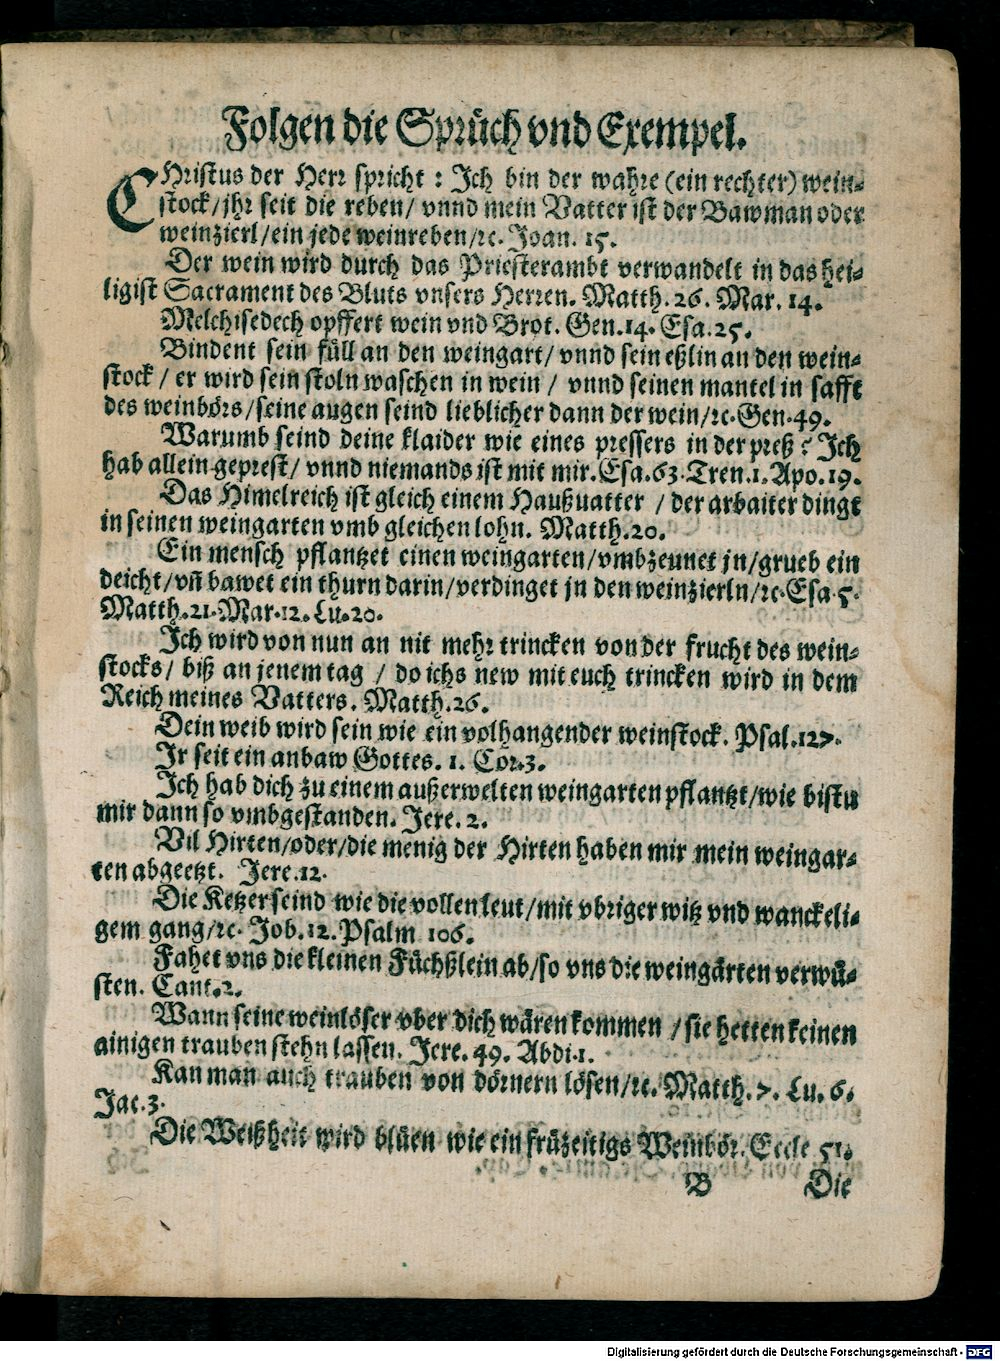 Folgen die Sprüch vnd Exempel.
CHristus der Herr spricht : Ich bin der wahre (ein rechter) wein-
stock/jhr seit die reben/ vnnd mein Vatter ist der Bawman oder
weinzierl/ein jede weinreben/ꝛc. Joan. 15.
Der wein wird durch das Priesterambt verwandelt in das hei-
ligist Sacrament des Bluts vnsers Herren. Matth. 26. Mar. 14.
Melchisedech opffert wein vnd Brot. Gen.14. Esa.25.
Bindent sein füll an den weingart/ vnnd sein eßlin an den wein-
stock / er wird sein stoln waschen in wein / vnnd seinen mantel in safft
des weinbörs/seine augen seind lieblicher dann der wein/ꝛc. Gen.49.
Warumb seind deine klaider wie eines pressers in der preß ? Ich
hab allein geprest/ vnnd niemands ist mit mir. Esa.63. Tren.1. Apo.19.
Das Himelreich ist gleich einem Haußuatter / der arbaiter dingt
in seinen weingarten vmb gleichen lohn. Matth.20.
Ein mensch pflantzet einen weingarten/vmbzeunet jn/grueb ein
deicht/vñ bawet ein thurn darin/verdinget jn den weinzierln/ꝛc. Esa.5.
Matth.21. Mar.12. Lu.20.
Ich wird von nun an nit mehr trincken von der frucht des wein-
stocks/ biß an jenem tag / do ichs new mit euch trincken wird in dem
Reich meines Vatters. Matth.26.
Dein weib wird sein wie ein volhangender weinstock. Psal.127.
Ir seit ein anbaw Gottes. 1. Cor.3.
Ich hab dich zu einem außerwelten weingarten pflantzt/wie bistu
mir dann so vmbgestanden. Jere. 2.
Vil Hirten/oder/die menig der Hirten haben mir mein weingar-
ten abgeetzt. Jere.12.
Die Ketzer seind wie die vollen leut/mit vbriger witz vnd wanckeli-
gem gang/ꝛc. Job.12. Psalm 106.
Fahet vns die kleinen Füchßlein ab/so vns die weingärten verwü-
sten. Cant.2.
Wann seine weinlöser vber dich wären kommen / sie hetten keinen
ainigen trauben stehn lassen. Jere. 49. Abdi.1.
Kan man auch trauben von dörnern lösen/ꝛc. Matth.7. Lu. 6.
Jac.3.
Die Weißheit wird blüen wie ein früzeitigs Weinbör. Eccle 51.
B Die
Digitalisierung gefördert durch die Deutsche Forschungsgemeinschaft - DFG